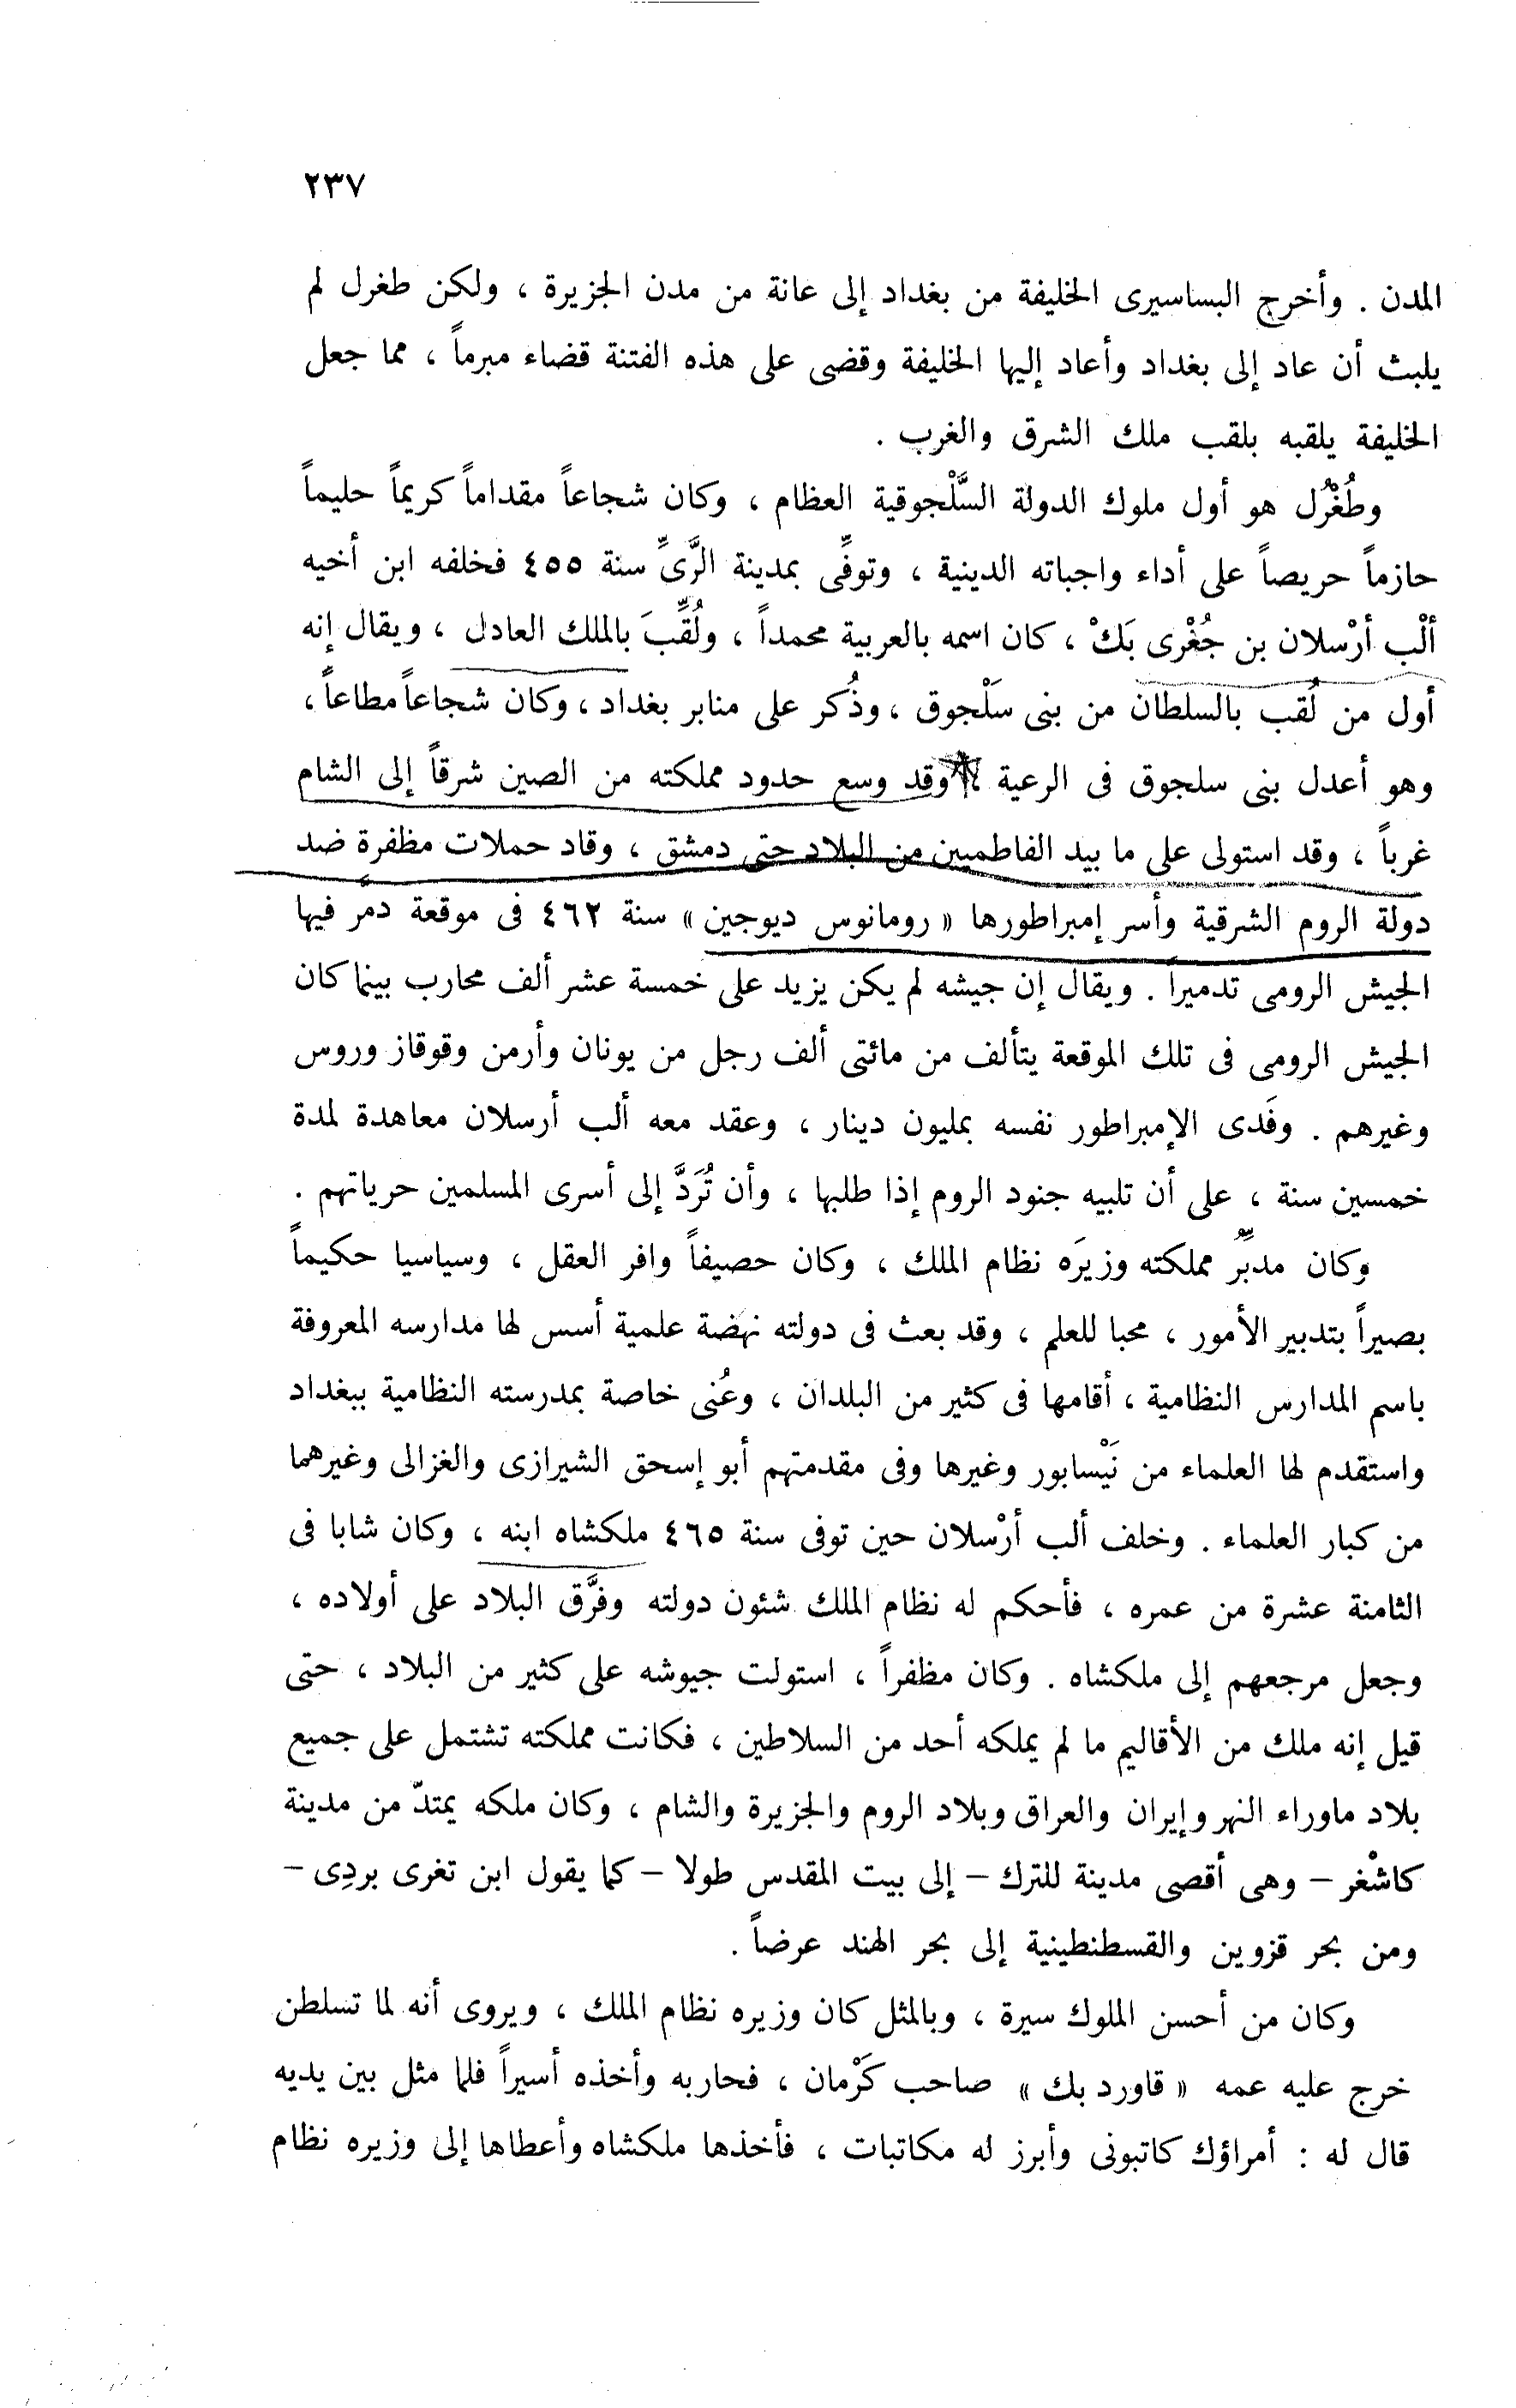 ٢٣٧
المدن . وأخرج البساسيرى الخليفة من بغداد إلى عانة من مدن الجزيرة ، ولكن طغرل لم
يلبث أن عاد إلى بغداد وأعاد إليها الخليفة وقضى على هذه الفتنة قضاء مبرماً ، مما جعل
الخليفة يلقبه بلقب ملك الشرق والغرب .
وطُغْرُل هو أول ملوك الدولة السَّلْجوقية العظام ، وكان شجاعاً مقداماً كريماً حليماً
حازماً حريصاً على أداء واجباته الدينية ، وتوفِّى بمدينة الرَّىِّ سنة ٤٥٥ فخلفه ابن أخيه
ألْب أرْسلان بن جُغْرى بَكْ ، كان اسمه بالعربية محمداً ، ولُقِّبَ بالملك العادل ، ويقال إنه
أول من لُقب بالسلطان من بنى سَلْجوق ، وذُكر على منابر بغداد ، وكان شجاعاً مطاعاً ،
وهو أعدل بنى سلجوق فى الرعية ، وقد وسع حدود مملكته من الصين شرقاً إلى الشام
غرباً ، وقد استولى على ما بيد الفاطميين من البلاد حتى دمشق ، وقاد حملات مظفرة ضد
دولة الروم الشرقية وأسر إمبراطورها « رومانوس ديوجين » سنة ٤٦٢ فى موقعة دمَّر فيها
الجيش الرومى تدميراً . ويقال إن جيشه لم يكن يزيد على خمسة عشر ألف محارب بينما كان
الجيش الرومى فى تلك الموقعة يتألف من مائتى ألف رجل من يونان وأرمن وقوقاز وروس
وغيرهم . وفَدى الإمبراطور نفسه بمليون دينار ، وعقد معه ألب أرسلان معاهدة لمدة
خمسين سنة ، على أن تلبيه جنود الروم إذا طلبها ، وأن تُرَدَّ إلى أسرى المسلمين حرياتهم .
وكان مدبِّرَ مملكته وزيرَه نظام الملك ، وكان حصيفاً وافر العقل ، وسياسيا حكيماً
بصيراً بتدبير الأمور ، محبا للعلم ، وقد بعث فى دولته نهضة علمية أسس لها مدارسه المعروفة
باسم المدارس النظامية ، أقامها فى كثير من البلدان ، وعُنى خاصة بمدرسته النظامية ببغداد
واستقدم لها العلماء من نَيْسابور وغيرها وفى مقدمتهم أبو إسحق الشيرازى والغزالى وغيرهما
من كبار العلماء . وخلف ألب أرْسلان حين توفى سنة ٤٦٥ ملكشاه ابنه ، وكان شابا فى
الثامنة عشرة من عمره ، فأحكم له نظام الملك شئون دولته وفرَّق البلاد على أولاده ،
وجعل مرجعهم إلى ملكشاه . وكان مظفراً ، استولت جيوشه على كثير من البلاد ، حتى
قيل إنه ملك من الأقاليم ما لم يملكه أحد من السلاطين ، فكانت مملكته تشتمل على جميع
بلاد ماوراء النهر وإيران والعراق وبلاد الروم والجزيرة والشام ، وكان ملكه يمتدّ من مدينة
كاشْغر – وهى أقصى مدينة للترك – إلى بيت المقدس طولا – كما يقول ابن تغرى بردِى –
ومن بحر قزوين والقسطنطينية إلى بحر الهند عرضاً .
وكان من أحسن الملوك سيرة ، وبالمثل كان وزيره نظام الملك ، ويروى أنه لما تسلطن
خرج عليه عمه « قاورد بك » صاحب كَرْمان ، فحاربه وأخذه أسيراً فلما مثل بين يديه
قال له : أمراؤك كاتبونى وأبرز له مكاتبات ، فأخذها ملكشاه وأعطاها إلى وزيره نظام